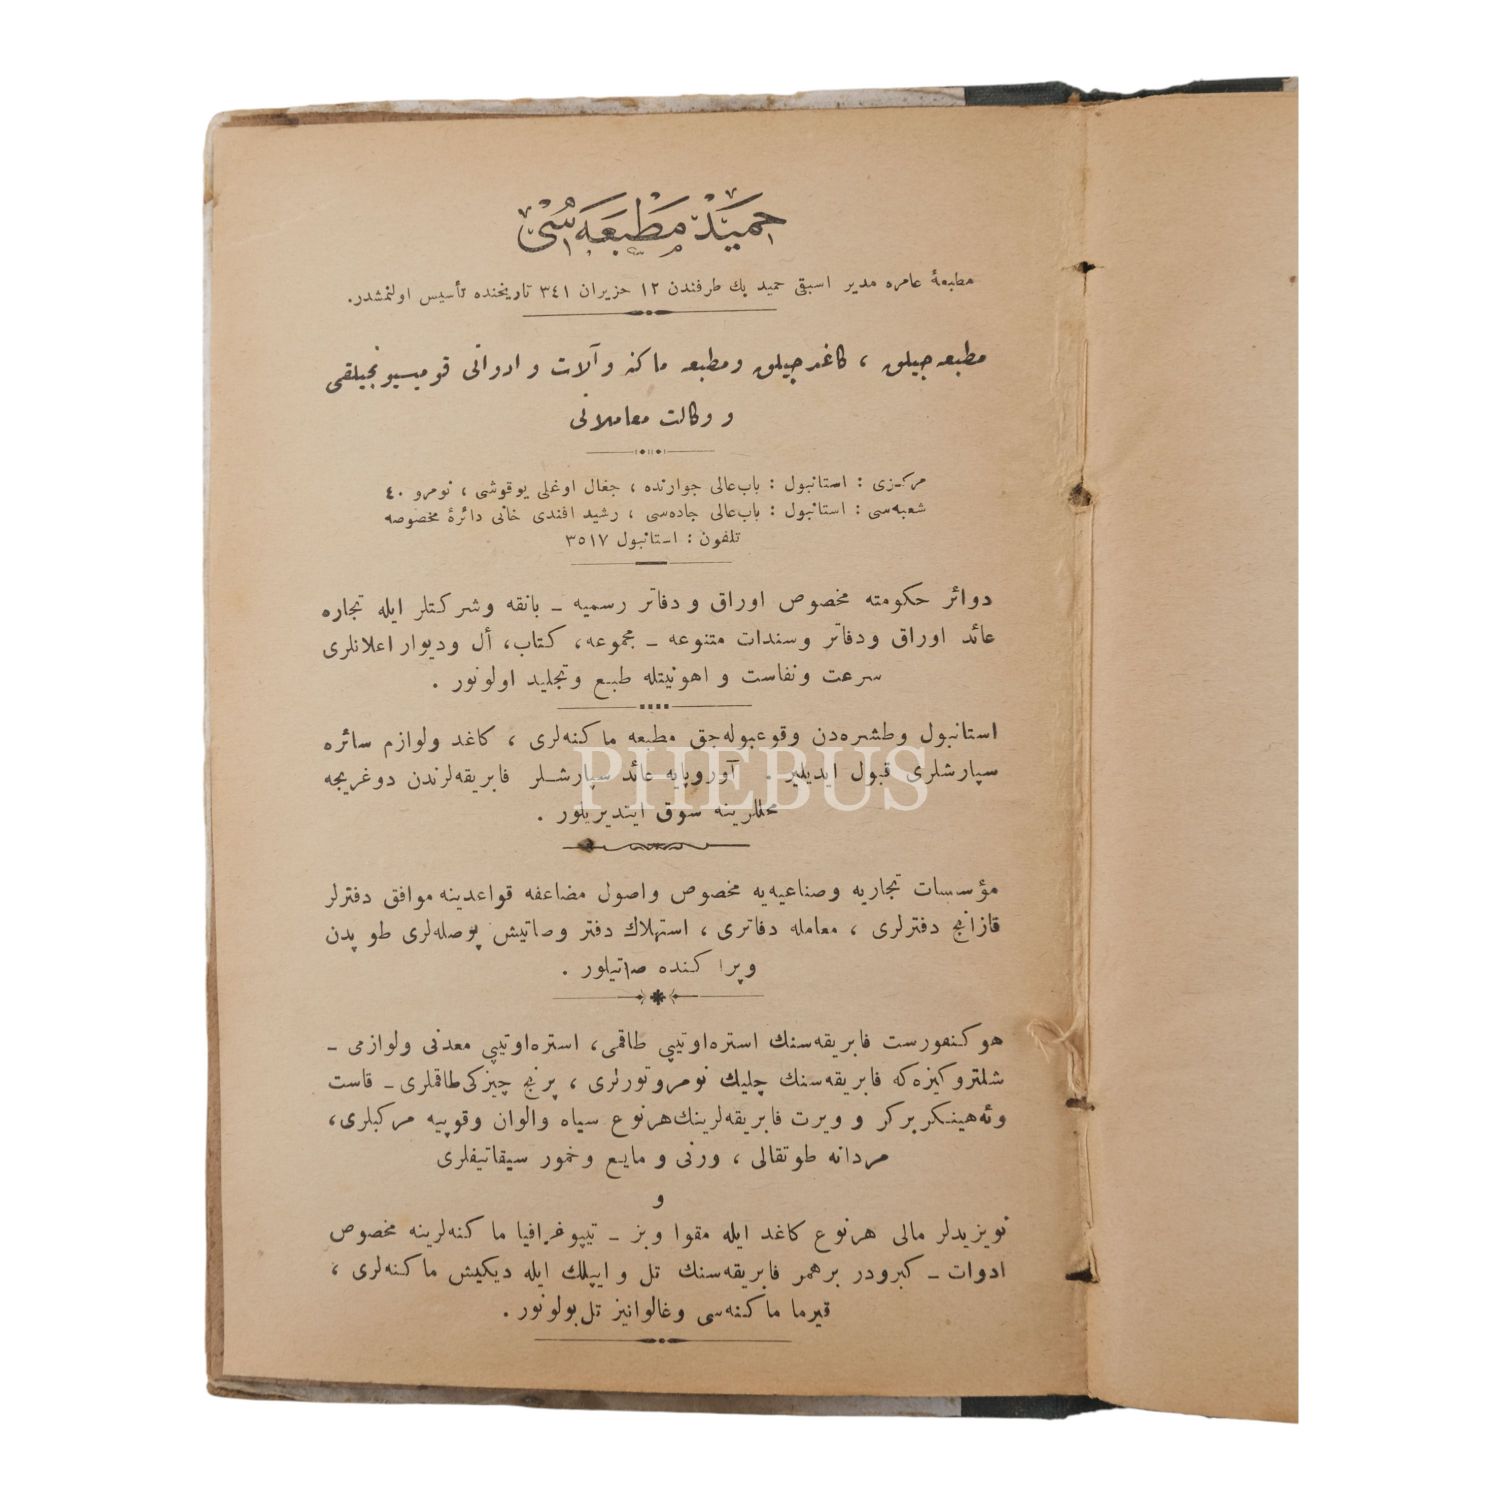 حميد مطبعه‌سى
مطبعهٔ عامره مدير اسبقى حميد بك طرفندن ١٢ حزيران ٣٤١ تاريخنده تأسيس اولنمشدر.
مطبعه‌جيلق ، كاغدجيلق و مطبعه ماكنه و آلات و ادواتى قوميسيونجيلقى
و وكالت معاملاتى
مركزى : استانبول : باب‌عالى جوارنده ، جغال اوغلى يوقوشى ، نومرو ٤٠
شعبه‌سى : استانبول : باب‌عالى جاده‌سى ، رشيد افندى خانى دائرهٔ مخصوصه
تلفون : استانبول ٣٥١٧
دوائر حكومته مخصوص اوراق و دفاتر رسميه ـ بانقه و شركتلر ايله تجاره
عائد اوراق و دفاتر و سندات متنوعه ـ مجموعه، كتاب، أل و ديوار اعلانلرى
سرعت و نفاست و اهونيتله طبع و تجليد اولونور .
استانبول و طشره‌دن وقوعبوله‌جق مطبعه ماكنه‌لرى ، كاغد و لوازم سائره
سپارشلرى قبول ايديلير . آوروپايه عائد سپارشلر فابريقه‌لرندن دوغريجه
محللرينه سوق ايتديريلور .
PHEBUS
مؤسسات تجاريه و صناعيه‌يه مخصوص و اصول مضاعفه قواعدينه موافق دفترلر
قازانج دفترلرى ، معامله دفاترى ، استهلاك دفتر و صاتيش پوصله‌لرى طوپدن
و پراكنده صاتيلور .
هوكنفورست فابريقه‌سنك استره‌اوتيپى طاقمى، استره‌اوتيپى معدنى و لوازمى ـ
شلتر و كيزه‌كه فابريقه‌سنك چليك نومروتورلرى ، پرنج چيزكى طاقملرى ـ قاست
وئه‌هينكر بركر و ويرت فابريقه‌لرينك هرنوع سياه و الوان و قوپيه مركبلرى،
مردانه طوتقالى ، ورنى و مايع و خمور سيقاتيفلرى
و
نويزيدلر مالى هرنوع كاغد ايله مقوا و بز ـ تيپوغرافيا ماكنه‌لرينه مخصوص
ادوات ـ كبرودر برهمر فابريقه‌سنك تل و ايپلك ايله ديكيش ماكنه‌لرى ،
قيرما ماكنه‌سى و غالوانيز تل بولونور .